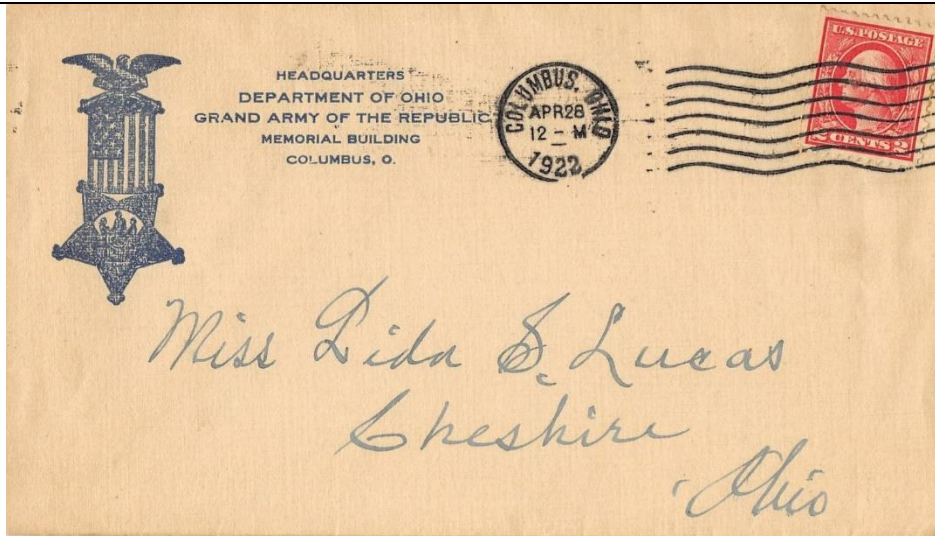 HEADQUARTERS
DEPARTMENT OF OHIO
GRAND ARMY OF THE REPUBLIC
MEMORIAL BUILDING
COLUMBUS, O.
COLUMBUS, OHIO
APR 28
12 - M
1922
U.S. POSTAGE
2 CENTS 2
Miss Lida S. Lucas
Cheshire
Ohio